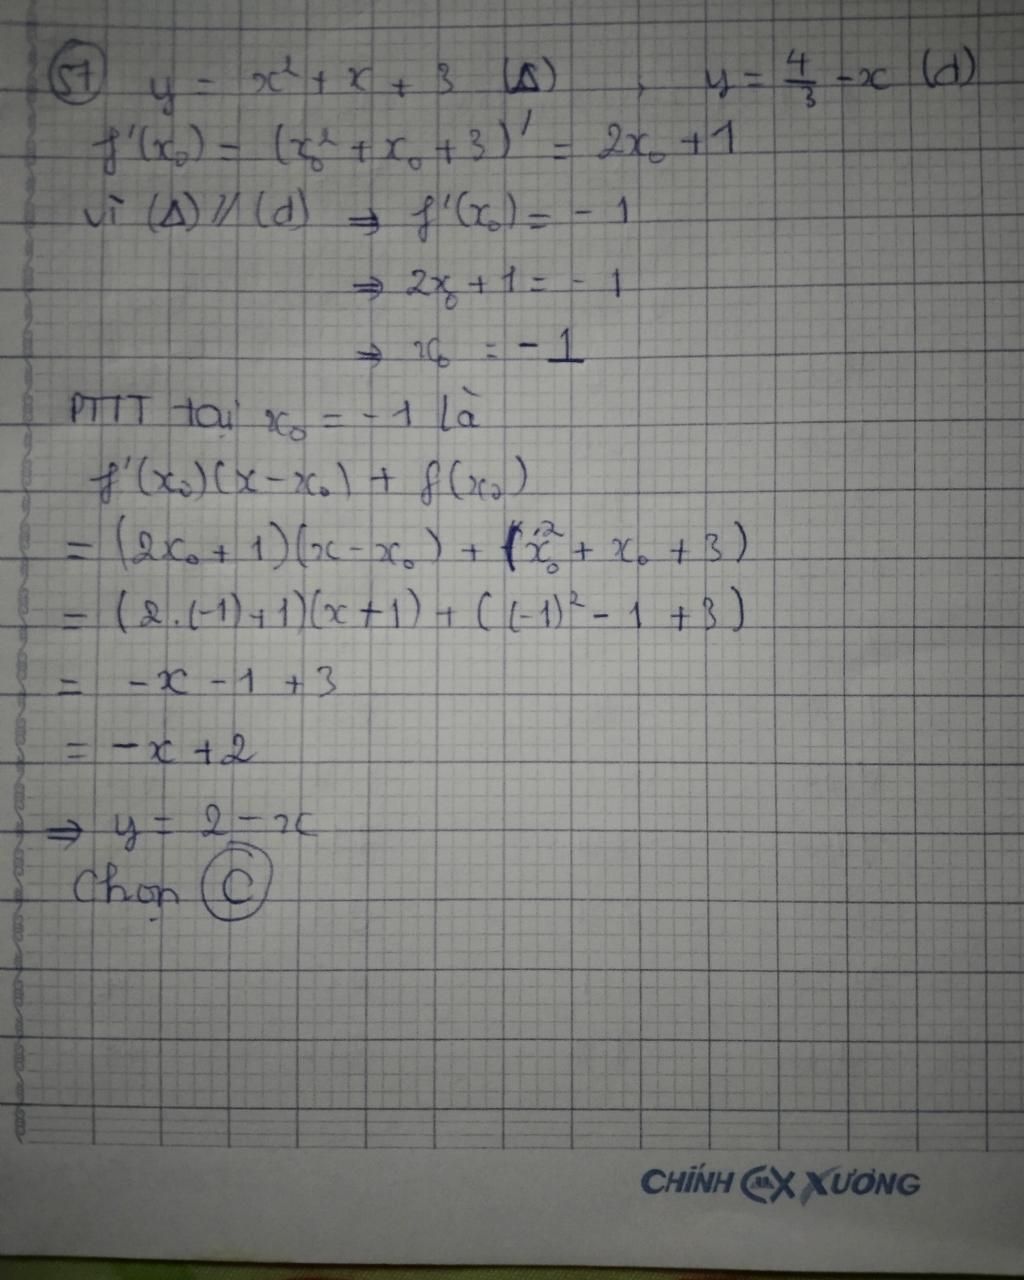 57 y = x² + x + 3 (Δ) , y = 4/3 - x (d)
f'(x₀) = (x₀² + x₀ + 3)' = 2x₀ + 1
vì (Δ) // (d) ⇒ f'(x₀) = - 1
⇒ 2x₀ + 1 = - 1
⇒ x₀ = - 1
PTTT tại x₀ = - 1 là
f'(x₀)(x - x₀) + f(x₀)
= (2x₀ + 1)(x - x₀) + (x₀² + x₀ + 3)
= (2.(-1)+1)(x+1) + ((-1)² - 1 + 3)
= -x - 1 + 3
= -x + 2
⇒ y = 2 - x
Chọn C
CHÍNH XƯƠNG